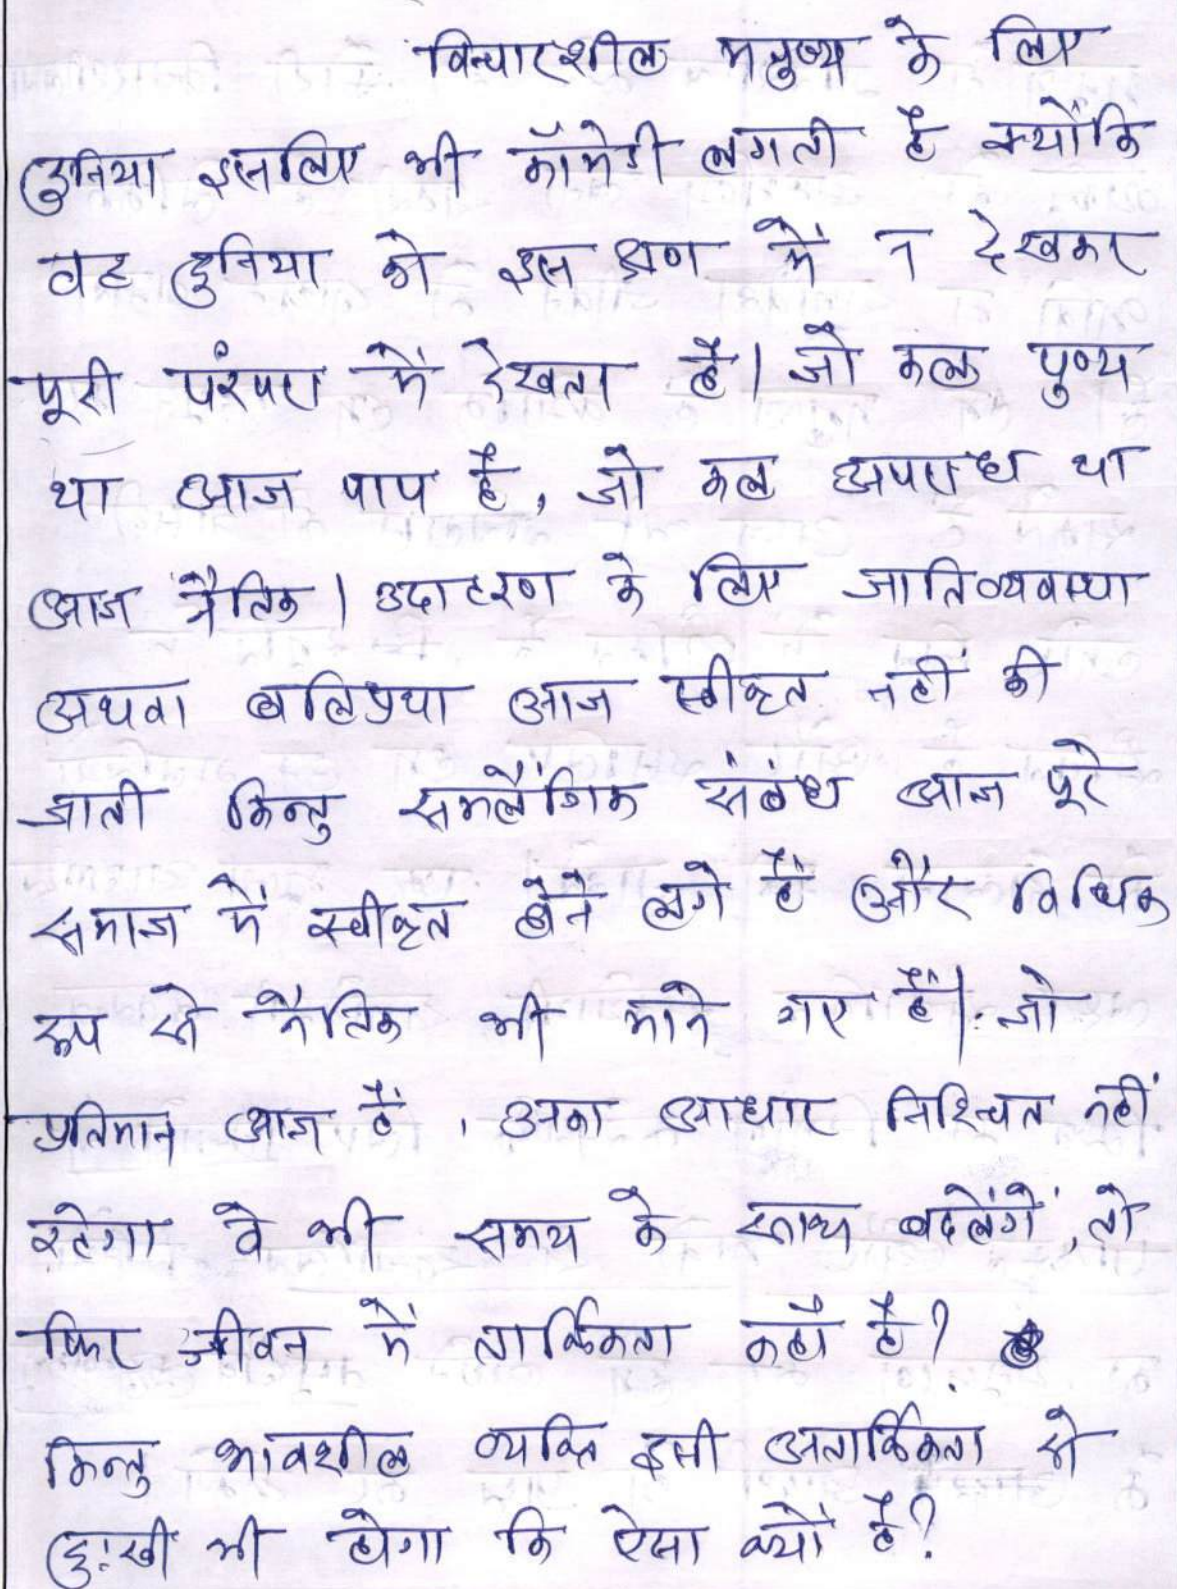 विचारशील मनुष्य के लिए
दुनिया इसलिए भी कॉमेडी लगती है क्योंकि
वह दुनिया को इस क्षण में न देखकर
पूरी परंपरा में देखता है। जो कल पुण्य
था आज पाप है, जो कल अपराध था
आज नैतिक। उदाहरण के लिए जातिव्यवस्था
अथवा बलिप्रथा आज स्वीकृत नहीं की
जाती किन्तु समलैंगिक संबंध आज पूरे
समाज में स्वीकृत होने लगे हैं और विधिक
रूप से नैतिक भी माने गए हैं। जो
प्रतिमान आज हैं, उनका आधार निश्चित नहीं
रहेगा वे भी समय के साथ बदलेंगें, तो
फिर जीवन में तार्किकता कहाँ है?
किन्तु भावशील व्यक्ति इसी अतार्किकता से
दुःखी भी होगा कि ऐसा क्यों है?